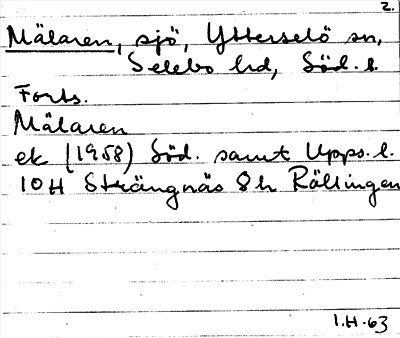 2.
Mälaren, sjö, Ytterselö sn,
Selebo hd, Söd. l.
Forts.
Mälaren
ek (1958) Söd. samt Upps. l.
10H Strängnäs 8h Rällingen
I.H-63